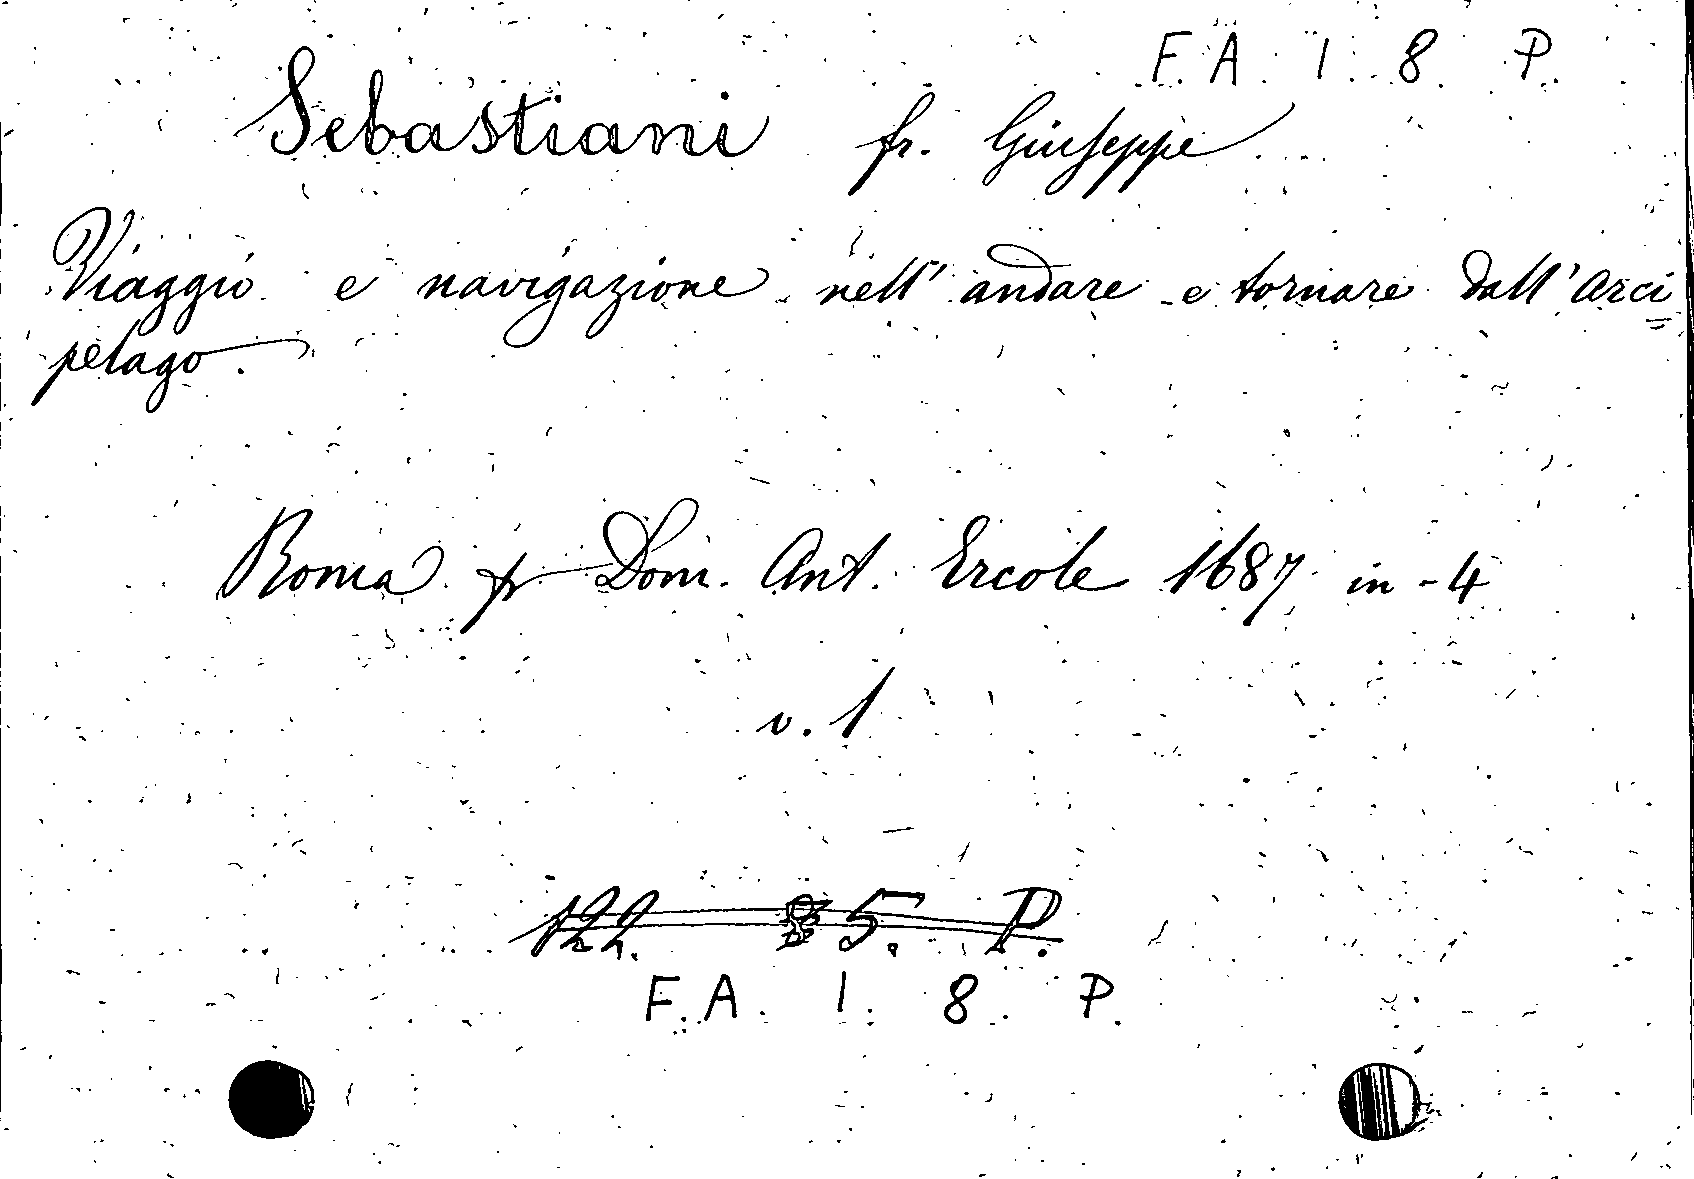 F. A. 1. 8. P.
Sebastiani fr. Giuseppe
Viaggio e navigazione nell' andare e tornare dall' Arci=
pelago.
Roma pr Dom. Ant. Ercole 1687 in-4
v. 1
122. 5. P.
F. A. 1. 8. P.